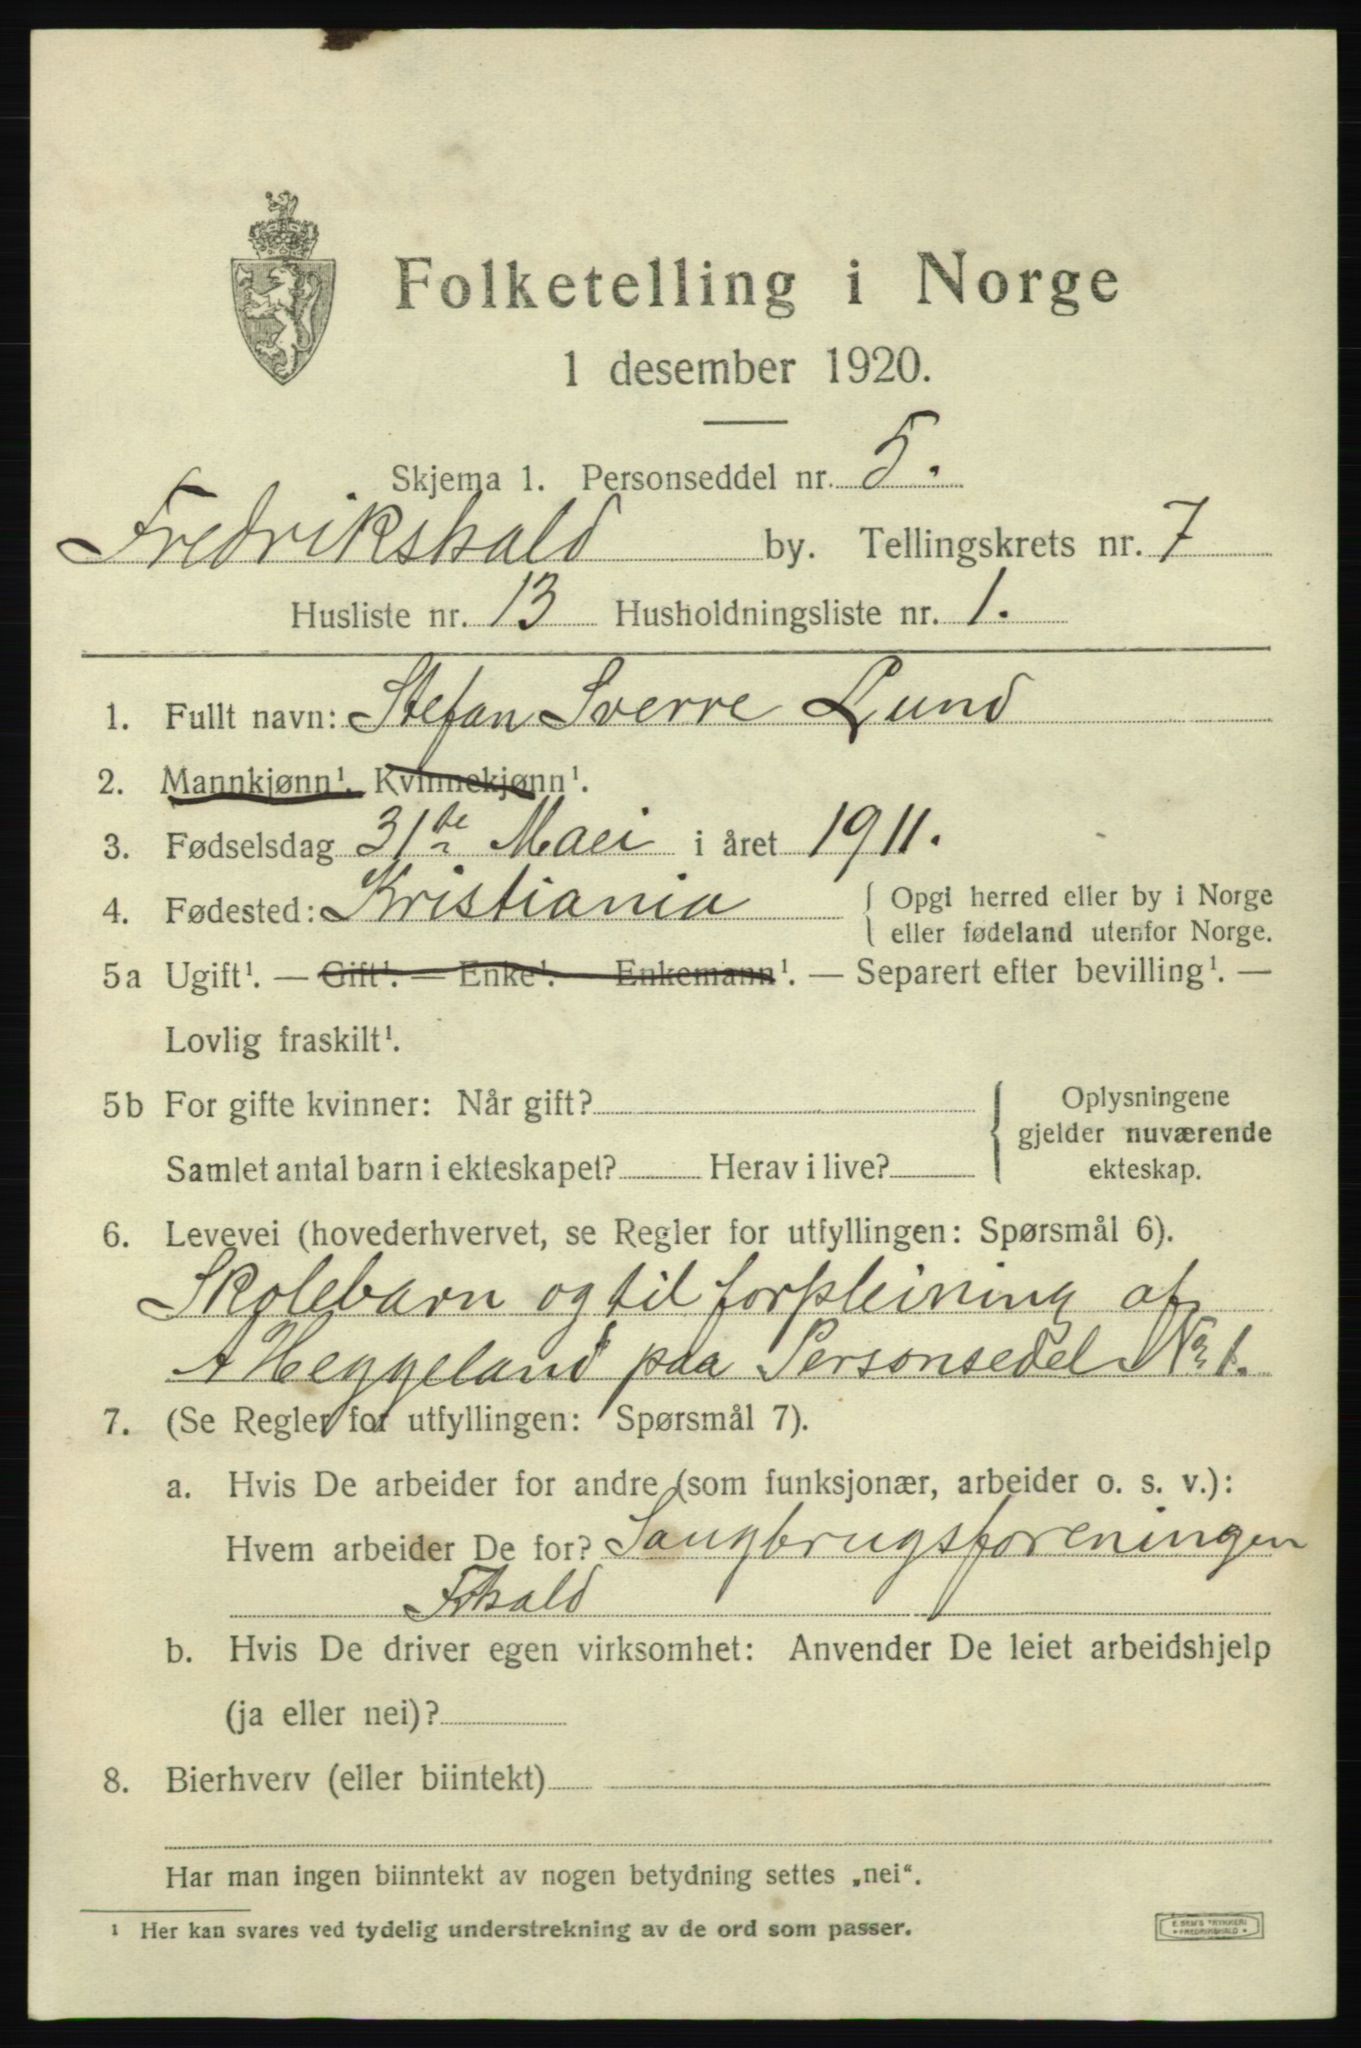 Folketelling i Norge
1 desember 1920.
Skjema 1. Personseddel nr. 5.
Fredrikshald by. Tellingskrets nr. 7
Husliste nr. 13 Husholdningsliste nr. 1.
1. Fullt navn: Stefan Sverre Lund
2. Mannkjønn¹. Kvinnekjønn¹.
3. Fødselsdag 31te Maei i året 1911.
4. Fødested: Kristiania { Opgi herred eller by i Norge
eller fødeland utenfor Norge.
5a Ugift¹. — Gift¹. — Enke¹. — Enkemann¹. — Separert efter bevilling¹. —
Lovlig fraskilt¹.
5b For gifte kvinner: Når gift? { Oplysningene
gjelder nuværende
Samlet antal barn i ekteskapet? Herav i live? ekteskap.
6. Levevei (hovederhvervet, se Regler for utfyllingen: Spørsmål 6).
Skolebarn og til forpleining af
A Heggeland paa Personsedel No 1.
7. (Se Regler for utfyllingen: Spørsmål 7).
a. Hvis De arbeider for andre (som funksjonær, arbeider o. s. v.):
Hvem arbeider De for? Saugbrugsforeningen
Fhald
b. Hvis De driver egen virksomhet: Anvender De leiet arbeidshjelp
(ja eller nei)?
8. Bierhverv (eller biintekt)
Har man ingen biinntekt av nogen betydning settes „nei“.
¹ Her kan svares ved tydelig understrekning av de ord som passer.
E. SEM'S TRYKKERI
FREDRIKSHALD